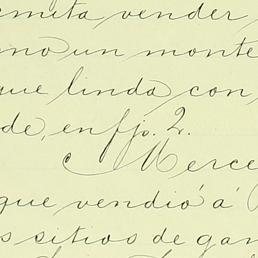 emita vender
mo un monte
que linda con,
de, en fjs. 2.
Merce
que vendió á
s sitios de gan